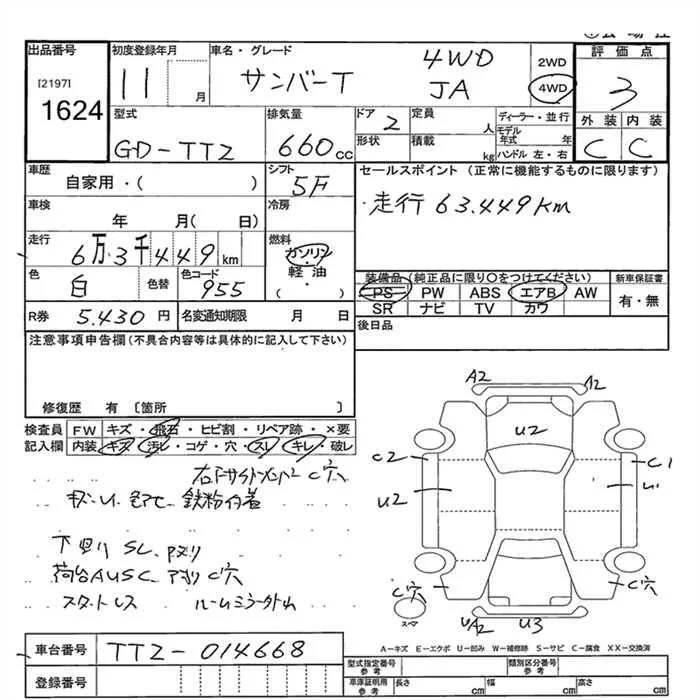 出品番号
[2197]
1624
初度登録年月
11 月
車名・グレード
サンバーT
4WD
JA
2WD
4WD
評価点
3
外装 内装
C C
型式
GD-TT2
排気量
660cc
ドア
2
形状
定員 人
積載 kg
ディーラー・並行
モデル年式 年
ハンドル 左・右
車歴
自家用・( )
シフト
5F
セールスポイント (正常に機能するものに限ります)
走行 63.449km
車検
年 月( 日)
冷房
走行
6万3千449km
燃料
ガソリン
・
軽油
・
( )
色
白
色替
色コード
955
装備品 (純正品に限り○をつけてください)
PS PW ABS エアB AW
SR ナビ TV カワ
新車保証書
有・無
R券 5.430円
名変通知期限 月 日
後日品
注意事項申告欄(不具合内容等は具体的に記入して下さい)
修復歴 有 [箇所 ]
検査員記入欄
FW キズ・飛石・ヒビ割・リペア跡・×要
内装 キズ・汚レ・コゲ・穴・スレ・キレ・破レ
右F サイドメンバ C穴
鉄粉付着
下回リ SL、Pヌリ
荷台AUSC、アオリC穴
スタートレス ルームミラー外レ
A2 A2
U2
C2 C1
U2 U1
C穴 C穴
スマ
UA2 U3
A－キズ E－エクボ U－凹み W－補修跡 S－サビ C－腐食 XX－交換済
車台番号
TT2-014668
登録番号
型式指定番号 参考
類別区分番号 参考
車庫証明用 参考
長さ cm
幅 cm
高さ cm